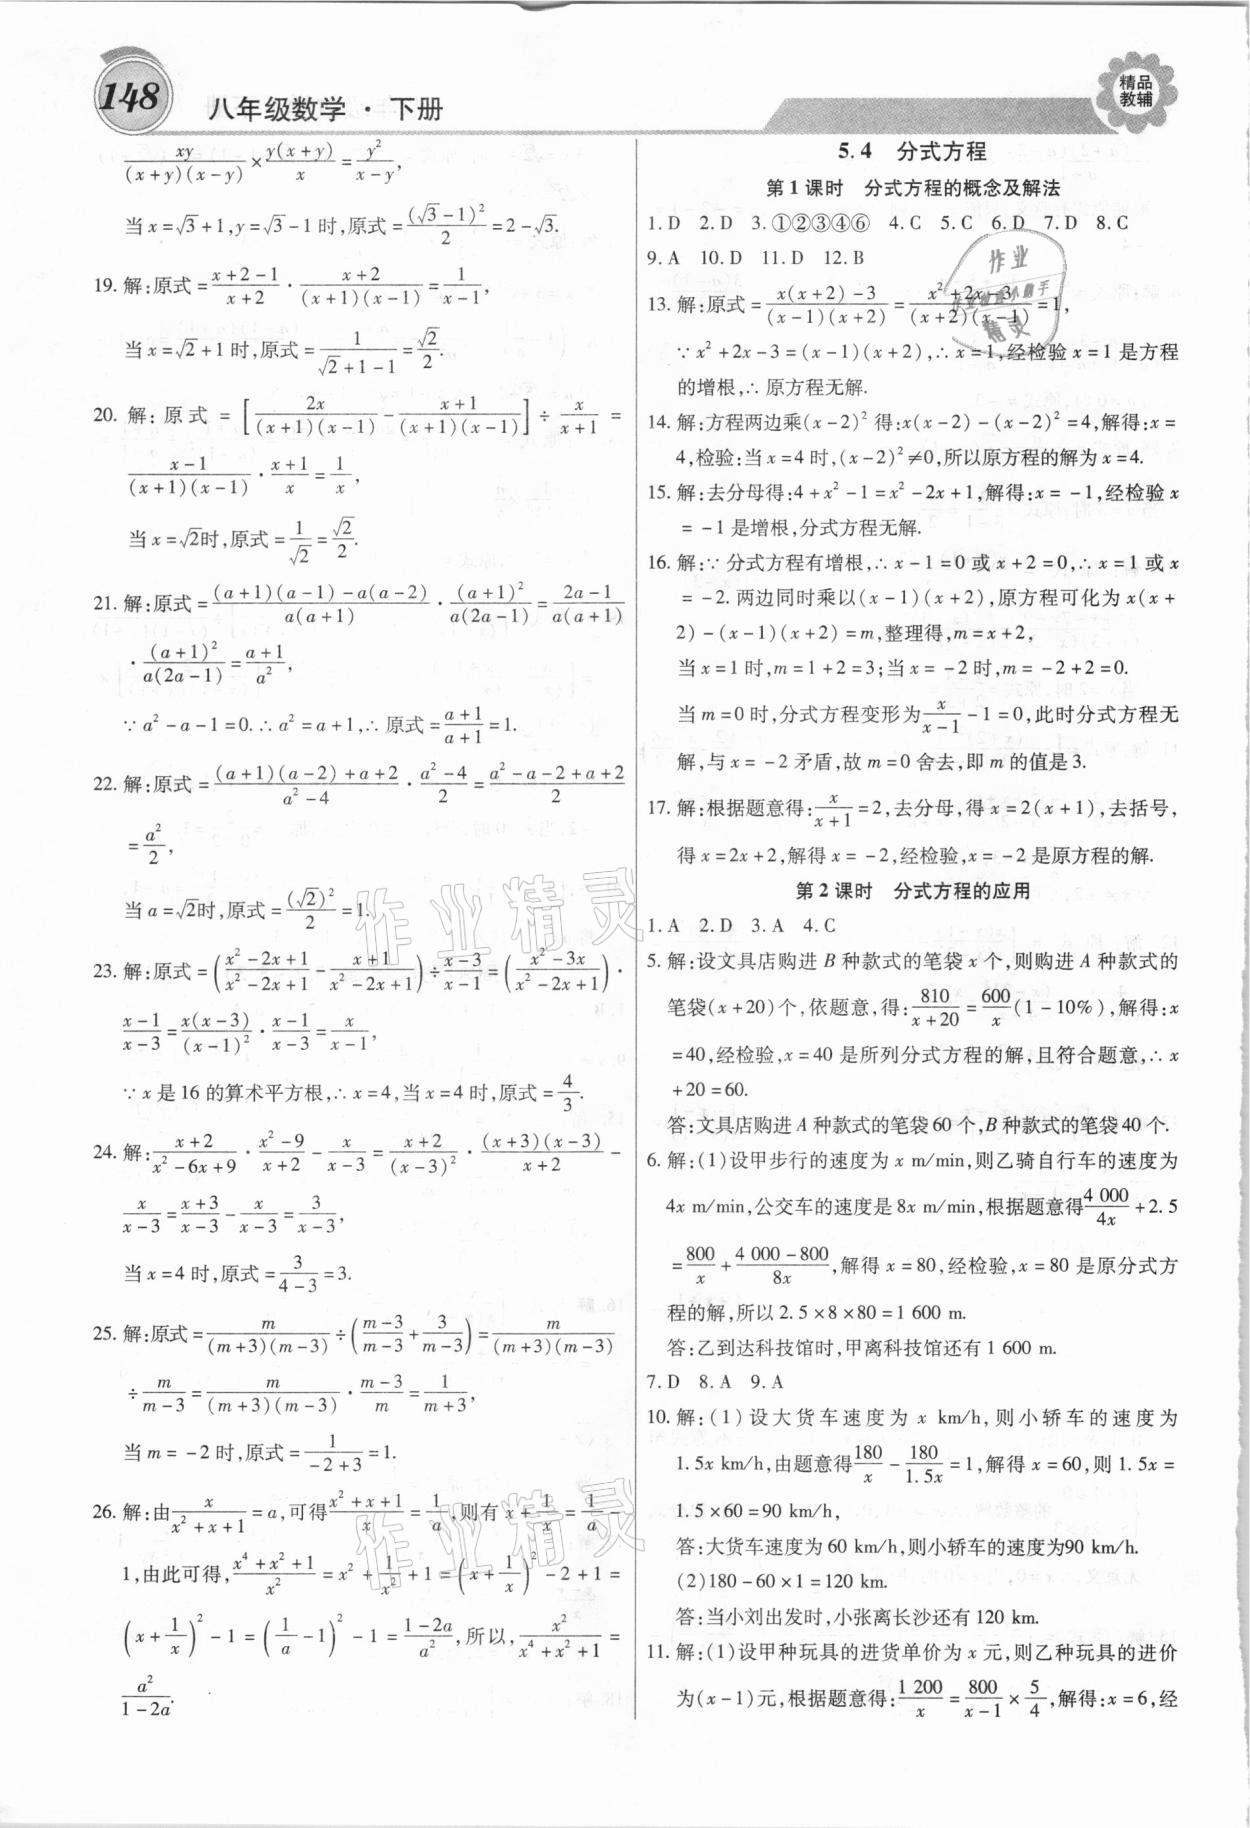 148
八年级数学·下册
精品
教辅
xy/((x+y)(x-y))×y(x+y)/x=y²/(x-y),
当x=√3+1,y=√3-1时,原式=(√3-1)²/2=2-√3.
19. 解:原式=(x+2-1)/(x+2)·(x+2)/((x+1)(x-1))=1/(x-1),
当x=√2+1时,原式=1/(√2+1-1)=√2/2.
20. 解:原式=[2x/((x+1)(x-1))-(x+1)/((x+1)(x-1))]÷x/(x+1)=
(x-1)/((x+1)(x-1))·(x+1)/x=1/x,
当x=√2时,原式=1/√2=√2/2.
21. 解:原式=((a+1)(a-1)-a(a-2))/(a(a+1))·(a+1)²/(a(2a-1))=(2a-1)/(a(a+1))
·(a+1)²/(a(2a-1))=(a+1)/a²,
∵a²-a-1=0.∴a²=a+1,∴原式=(a+1)/(a+1)=1.
22. 解:原式=((a+1)(a-2)+a+2)/(a²-4)·(a²-4)/2=(a²-a-2+a+2)/2
=a²/2,
当a=√2时,原式=(√2)²/2=1.
23. 解:原式=((x²-2x+1)/(x²-2x+1)-(x+1)/(x²-2x+1))÷(x-3)/(x-1)=((x²-3x)/(x²-2x+1))·
(x-1)/(x-3)=x(x-3)/(x-1)²·(x-1)/(x-3)=x/(x-1),
∵x是16的算术平方根,∴x=4,当x=4时,原式=4/3.
24. 解:(x+2)/(x²-6x+9)·(x²-9)/(x+2)-x/(x-3)=(x+2)/(x-3)²·((x+3)(x-3))/(x+2)-
x/(x-3)=(x+3)/(x-3)-x/(x-3)=3/(x-3),
当x=4时,原式=3/(4-3)=3.
25. 解:原式=m/((m+3)(m-3))÷((m-3)/(m-3)+3/(m-3))=m/((m+3)(m-3))
÷m/(m-3)=m/((m+3)(m-3))·(m-3)/m=1/(m+3),
当m=-2时,原式=1/(-2+3)=1.
26. 解:由x/(x²+x+1)=a,可得(x²+x+1)/x=1/a,则有x+1/x=1/a-
1,由此可得,(x⁴+x²+1)/x²=x²+1/x²+1=(x+1/x)²-2+1=
(x+1/x)²-1=(1/a-1)²-1=(1-2a)/a²,所以,x²/(x⁴+x²+1)=
a²/(1-2a).
5.4 分式方程
第1课时 分式方程的概念及解法
1. D 2. D 3. ①②③④⑥ 4. C 5. C 6. D 7. D 8. C
9. A 10. D 11. D 12. B
13. 解:原式=(x(x+2)-3)/((x-1)(x+2))=(x²+2x-3)/((x+2)(x-1))=1,
∵x²+2x-3=(x-1)(x+2),∴x=1,经检验x=1是方程
的增根,∴原方程无解.
14. 解:方程两边乘(x-2)²得:x(x-2)-(x-2)²=4,解得:x=
4,检验:当x=4时,(x-2)²≠0,所以原方程的解为x=4.
15. 解:去分母得:4+x²-1=x²-2x+1,解得:x=-1,经检验x
=-1是增根,分式方程无解.
16. 解:∵分式方程有增根,∴x-1=0或x+2=0,∴x=1或x
=-2.两边同时乘以(x-1)(x+2),原方程可化为x(x+
2)-(x-1)(x+2)=m,整理得,m=x+2,
当x=1时,m=1+2=3;当x=-2时,m=-2+2=0.
当m=0时,分式方程变形为x/(x-1)-1=0,此时分式方程无
解,与x=-2矛盾,故m=0舍去,即m的值是3.
17. 解:根据题意得:x/(x+1)=2,去分母,得x=2(x+1),去括号,
得x=2x+2,解得x=-2,经检验,x=-2是原方程的解.
第2课时 分式方程的应用
1. A 2. D 3. A 4. C
5. 解:设文具店购进B种款式的笔袋x个,则购进A种款式的
笔袋(x+20)个,依题意,得:810/(x+20)=600/x(1-10%),解得:x
=40,经检验,x=40是所列分式方程的解,且符合题意,∴x
+20=60.
答:文具店购进A种款式的笔袋60个,B种款式的笔袋40个.
6. 解:(1)设甲步行的速度为x m/min,则乙骑自行车的速度为
4x m/min,公交车的速度是8x m/min,根据题意得4 000/4x+2.5
=800/x+(4 000-800)/8x,解得x=80,经检验,x=80是原分式方
程的解,所以2.5×8×80=1 600 m.
答:乙到达科技馆时,甲离科技馆还有1 600 m.
7. D 8. A 9. A
10. 解:(1)设大货车速度为x km/h,则小轿车的速度为
1.5x km/h,由题意得180/x-180/1.5x=1,解得x=60,则1.5x=
1.5×60=90 km/h,
答:大货车速度为60 km/h,则小轿车的速度为90 km/h.
(2)180-60×1=120 km.
答:当小刘出发时,小张离长沙还有120 km.
11. 解:(1)设甲种玩具的进货单价为x元,则乙种玩具的进价
为(x-1)元,根据题意得:1 200/x=800/(x-1)×5/4,解得:x=6,经
作业精灵
作业精灵
作业
作业检查小助手
精灵